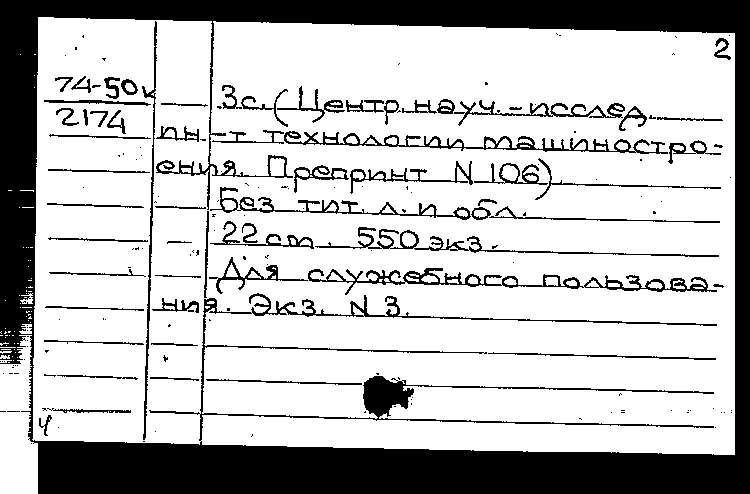 2
74-50к
2174
3с. (Центр. науч.-исслед.
ин-т технологии машиностро-
ения. Препринт N 106)
Без тит. л. и обл.
22 cm. 550 экз.
Для служебного пользова-
ния. Экз. N 3.